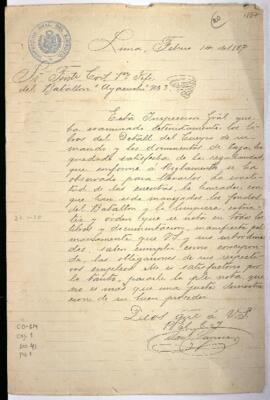 Lima, Febro 14 de 1887
Sr. Tnte Corl 1er Jefe
del Batallon "Ayacucho" No 3
Esta Inspeccion Gral que
ha examinado detenidamente los li-
bros del Detall del Cuerpo de su
mando y los documentos de Caja, ha
quedado satisfecha de la regularidad
que conforme á Reglamento se ha
observado para llevarlos, la exacti-
tud de las cuentas, la honradez
con que han sido manejados los fondos
del Batallon y la limpieza
y orden que se nota en todos los
libros y documentacion, manifiesta
que US y sus subordina-
dos saben cumplir como correspon-
de, las obligaciones de sus respecti-
vos empleos. Me es satisfactorio por
lo tanto, pasarle la pte nota, que
no es mas que una justa demostra-
cion de su buen proceder.
Dios gue á US.